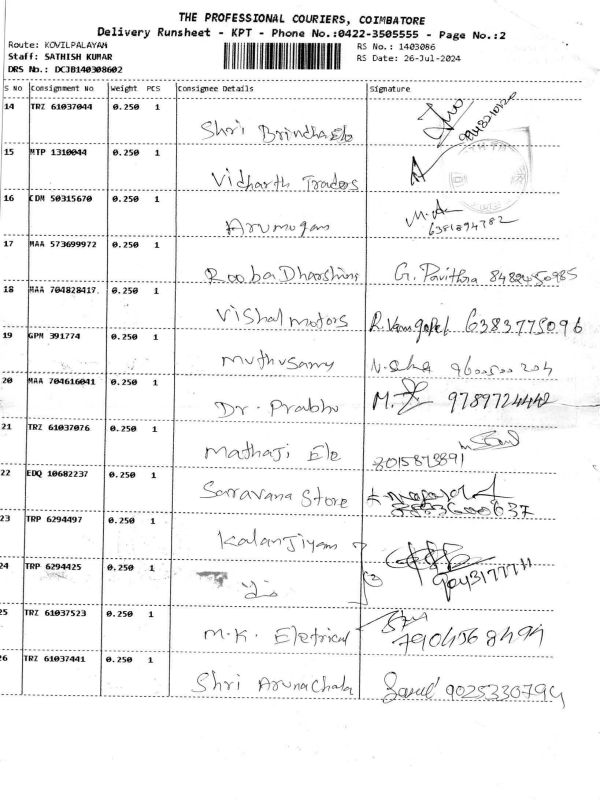 THE PROFESSIONAL COURIERS, COIMBATORE
Delivery Runsheet - KPT - Phone No.:0422-3505555 - Page No.:2
Route: KOVILPALAYAM
RS No.: 1403086
Staff: SATHISH KUMAR
RS Date: 26-Jul-2024
DRS No.: DCJB140308602
S No Consignment No Weight PCS Consignee Details Signature
14 TRZ 61037044 0.250 1
Shri Brindha Ele
15 MTP 1310044 0.250 1
Vidharth Traders
16 CDM 50315670 0.250 1
Arumugam
6381894782
17 MAA 573699972 0.250 1
Rooba Dharshini G. Pavithra 8482450985
18 MAA 704828417 0.250 1
Vishal motors R. Venugopal 6383775096
19 GPM 391774 0.250 1
Muthusamy
20 MAA 704616041 0.250 1
Dr. Prabhu M. 9789724442
21 TRZ 61037076 0.250 1
Mathaji Ele 8015873891
22 EDQ 10682237 0.250 1
Sarravana Store
23 TRP 6294497 0.250 1
Kalanjiyam
24 TRP 6294425 0.250 1
25 TRZ 61037523 0.250 1
M.K. Eletrical 7904568494
26 TRZ 61037441 0.250 1
Shri Arunachala 9025330794